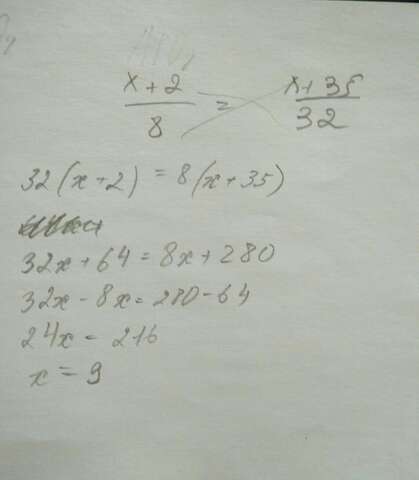 x+2/8 = x+35/32
32(x+2) = 8(x+35)
32x+64=8x+280
32x-8x=280-64
24x=216
x=9